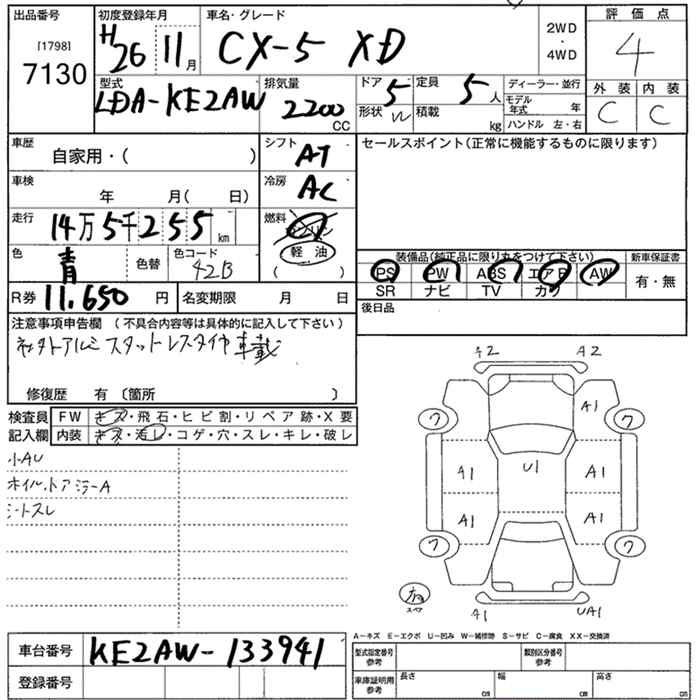 出品番号
[1798]
7130
初度登録年月
H26 11月
車名・グレード
CX-5 XD
2WD
・
4WD
評価点
4
外装 内装
C C
型式
LDA-KE2AW
排気量
2200
CC
ドア 5
形状 W
定員 5人
積載 kg
ディーラー・並行
モデル年式 年
ハンドル 左・右
車歴
自家用・( )
シフト
AT
セールスポイント(正常に機能するものに限ります)
車検
年 月( 日)
冷房
AC
走行
14万5千255km
燃料
ガソリン
軽油
( )
色
青
色替
色コード
42B
装備品(純正品に限り丸をつけて下さい)
PS PW ABS エアB AW
SR ナビ TV カワ
新車保証書
有・無
R券 11,650円
名変期限 月 日
後日品
注意事項申告欄 (不具合内容等は具体的に記入して下さい)
社外アルミ スタットレスタイヤ車載
修復歴 有 〔箇所 〕
検査員
記入欄
FW キズ・飛石・ヒビ割・リペア跡・X要
内装 キズ・汚レ・コゲ・穴・スレ・キレ・破レ
小AU
ホイル、ドアミラーA
シートスレ
A2 A2
A1
ワ ワ
A1 U1 A1
A1 A1
ワ ワ
スペア
A1 UA1
A-キズ E-エクボ U-凹み W-補修跡 S-サビ C-腐食 XX-交換済
車台番号
KE2AW-133941
登録番号
型式指定番号
参考
類別区分番号
参考
車庫証明用
参考
長さ cm
幅 cm
高さ cm